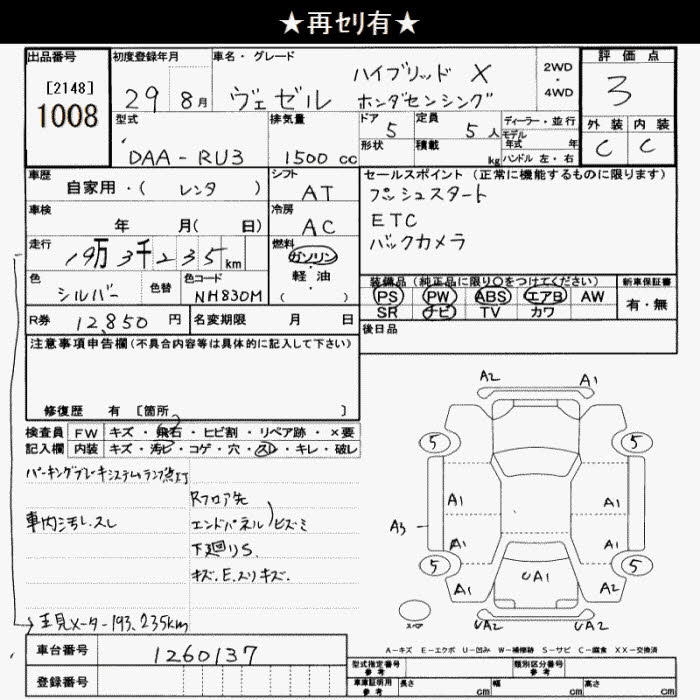 ★再ｾﾘ有★
出品番号
[2148]
1008
初度登録年月
29 8月
車名・グレード
ハイブリッド X
ヴェゼル ホンダセンシング
2WD
・
4WD
評価点
3
外装 内装
C C
型式
DAA-RU3
排気量
1500 cc
ドア
5
定員
5 人
形状
積載
kg
ディーラー・並行
モデル
年式 年
ハンドル 左・右
車歴
自家用・( レンタ )
シフト
AT
車検
年 月( 日)
冷房
AC
走行
19万3千235km
燃料
ガソリン
・
軽油
( )
色
シルバー
色替
色コード
NH830M
セールスポイント(正常に機能するものに限ります)
プッシュスタート
ETC
バックカメラ
装備品(純正品に限り○をつけてください)
PS PW ABS エアB AW
SR ナビ TV カワ
新車保証書
有・無
R券 12,850 円
名変期限 月 日
後日品
注意事項申告欄(不具合内容等は具体的に記入して下さい)
修復歴 有 [箇所 ]
検査員 FW キズ・飛石・ヒビ割・リペア跡・×要
記入欄 内装 キズ・汚ビ・コゲ・穴・スレ・キレ・破レ
パーキングブレーキシステムランプ点灯
車内汚レ.スレ
Rフロア先
エンドパネル)ヒズミ
下廻りS.
キズ.E.スリキズ.
走見メーター193,235km
A2 A1
5 5
A1 A1
A3
A1 A1
5 5
UA1
A1 A2
スペア
UA2 UA2
A－キズ E－エクボ U－凹み W－補修跡 S－サビ C－腐食 XX－交換済
車台番号 1260137
登録番号
型式指定番号
参考
類別区分番号
参考
車庫証明用
参考
長さ cm 幅 cm 高さ cm